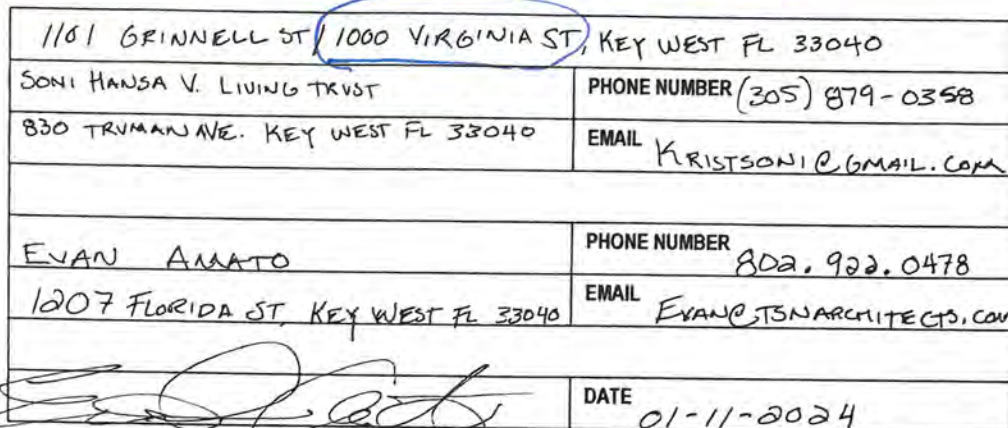 1101 GRINNELL ST / 1000 VIRGINIA ST, KEY WEST FL 33040
SONI HANSA V. LIVING TRUST PHONE NUMBER (305) 879-0358
830 TRUMAN AVE. KEY WEST FL 33040 EMAIL KRISTSONI@GMAIL.COM
EVAN AMATO PHONE NUMBER 802.922.0478
1207 FLORIDA ST, KEY WEST FL 33040 EMAIL EVAN@TSNARCHITECTS.COM
DATE 01-11-2024